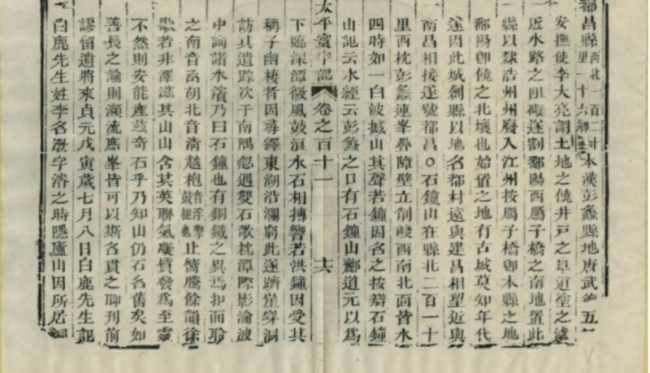 都昌縣西北一百二十里一十六鄉本漢彭蠡縣地唐武德五
安撫使李大亮謂土地之饒井戶之阜道塗之遠
近水路之阻礙遂割鄱陽西鴈子橋之南地置此
縣以隸浩州州廢入江州按鴈子橋卽本縣之地
鄱陽卽饒之北壤也始置之地有古城莫知年代
遂因此城創縣以地名都村遠與建昌相望近與
南昌相接遂號都昌○石鐘山在縣北二百一十
里西枕彭蠡連峯疊嶂壁立削峻西南北面皆水
四時如一白波撼山其聲若鐘因名之按辯石鐘
山記云水經云彭蠡之口有石鐘山酈道元以爲
太平寰宇記 卷之百十一 十六
下臨深潭微風鼓浪水石相搏響若洪鐘因受其
稱予幽棲者因尋繹東湖沿瀾窮此遂躋崖穿洞
訪其遺蹤次于南隅忽遇雙石欹枕潭際影淪波
中詢諸水濱乃曰石鐘也有銅鐵之異焉扣而聆
之南音函胡北音清越枹音浮擊鼓槌也止響騰餘韻徐
歇若非潭滋其山山含其英聯氣凝質發爲至靈
不然則安能產茲奇石乎乃知山仍石名舊矣如
善長之論則瀕流庶峯皆可以斯名貫之聊刊前
謬留遺將來貞元戊寅歲七月八日白鹿先生記
白鹿先生姓李名渤字濬之時隱廬山因所居